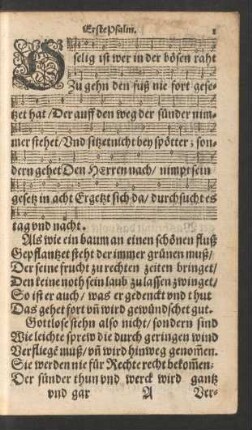 Erste Psalm. 1
O selig ist wer in der bösen raht
Zu gehn den fuß nie fort gese-
tzet hat / Der auff den weg der sünder nim-
mer stehet / Und sitzet nicht bey spötter; son-
dern gehet Den HErren nach / nimpt sein
gesetz in acht Ergetzt sich da / durchsucht es
tag und nacht.
Als wie ein baum an einen schönen fluß
Gepflantzet steht der immer grünen muß /
Der seine frucht zu rechten zeiten bringet /
Den keine noth sein laub zu lassen zwinget /
So ist er auch / was er gedenckt vnd thut
Das gehet fort vñ wird gewündschet gut.
Gottlose stehn also nicht / sondern sind
Wie leichte sprew die durch geringen wind
Verfliegẽ muß / vñ wird hinweg genom̃en.
Sie werden nie für Rechte recht bekom̃en:
Der sünder thun vnd werck wird gantz
vnd gar A Ver-